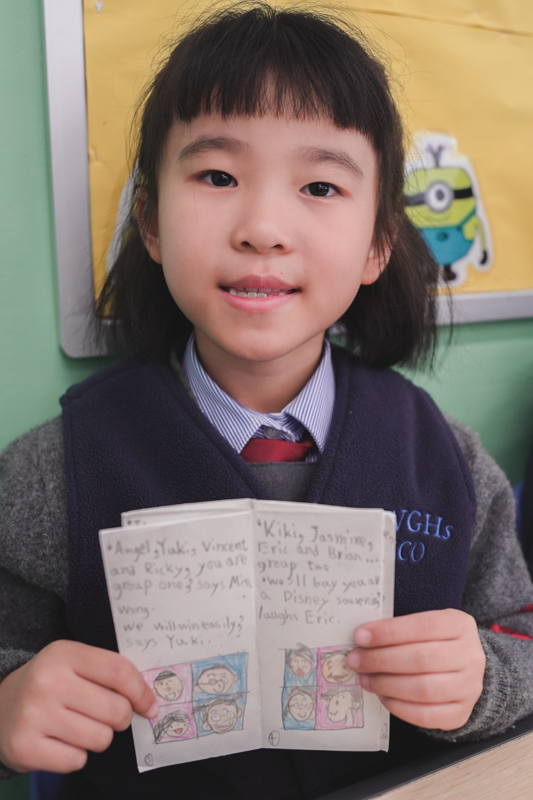 "Angel, Yuki, Vincent
and Ricky, you are
group one," says Mrs
Wing.
we will win easily,"
says Yuki.
"Kiki, Jasmine,
Eric and Brian...
group two
"we'll buy you all
a Disney souvenir,"
laughs Eric.
4
VGHs
CO